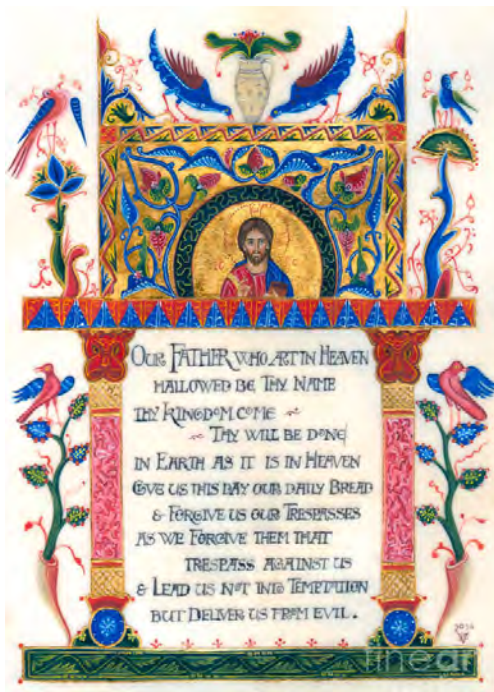 Our Father who art in Heaven
hallowed be Thy Name
Thy Kingdom come
Thy will be done
in Earth as it is in Heaven
Give us this day our daily Bread
& Forgive us our Trespasses
as we Forgive them that
trespass against us
& Lead us not into Temptation
but Deliver us from evil.
fineart